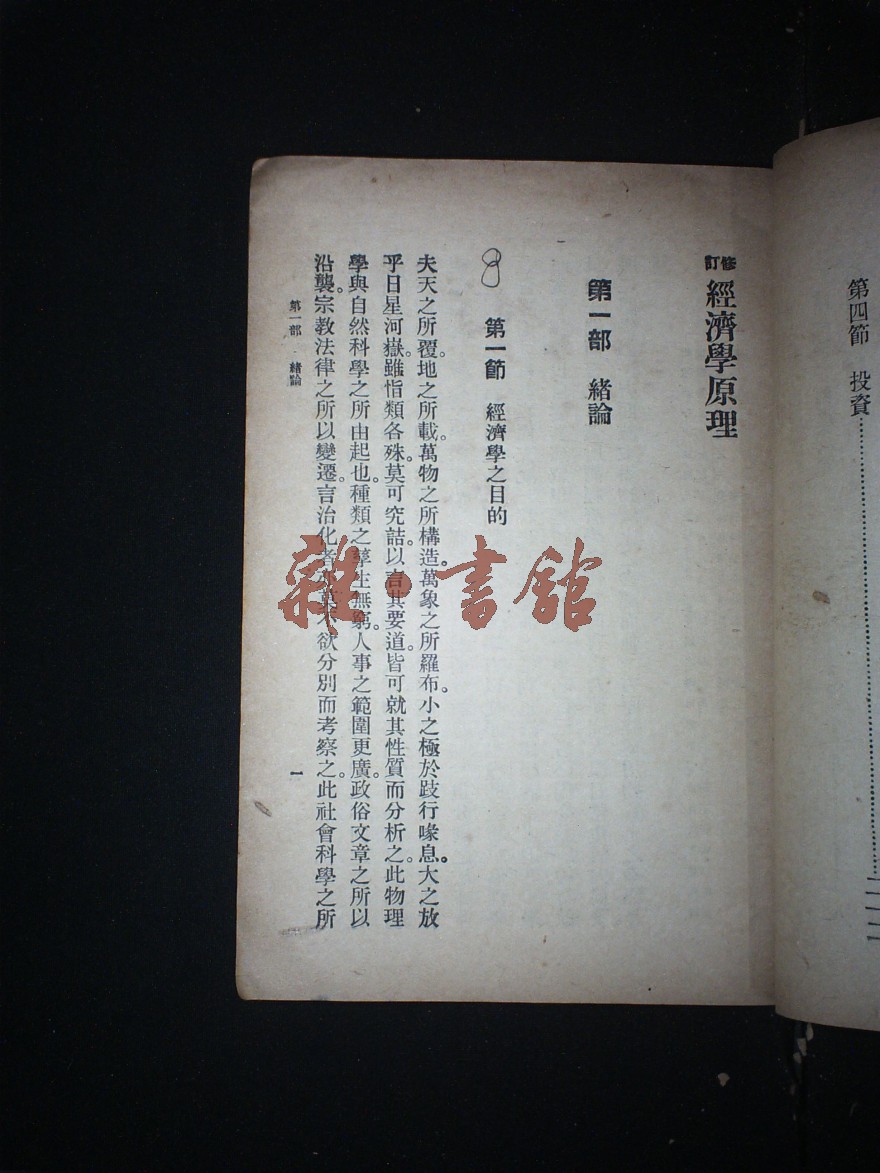 第四節　投資……………………一一二
修訂 經濟學原理
第一部　緒論
8
第一節　經濟學之目的
夫天之所覆。地之所載。萬物之所構造。萬象之所羅布。小之極於跂行喙息。大之放
乎日星河嶽。雖恉類各殊。莫可究詰。以言其要道。皆可就其性質而分析之。此物理
學與自然科學之所由起也。種類之孳生無窮。人事之範圍更廣。政俗文章之所以
沿襲。宗教法律之所以變遷。言治化者亦莫不欲分別而考察之。此社會科學之所
第一部　緒論
一
雜·書館